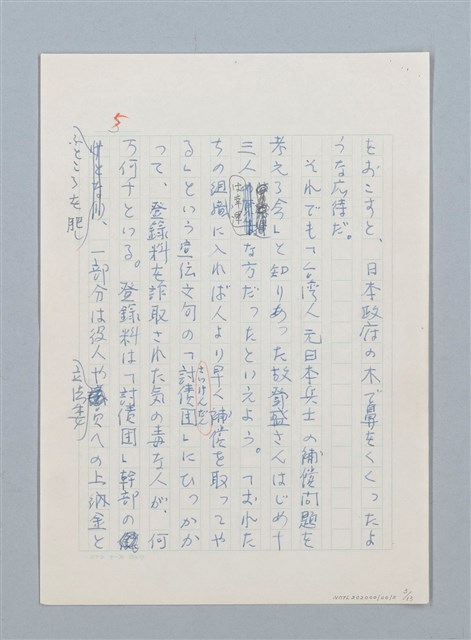 5
をおこすと、日本政府の木で鼻をくくったよ
うな応待だ。
それでも「台湾人元日本兵士の補償問題を
考える会」と知りあった故鄧盛さんはじめ十
三人は幸運な方だったといえよう。「おれた
ちの組織に入れば人より早く補償を取ってや
る」という宣伝文句の「討債団」にひっかか
さいけんだん
って、登録料を詐取された気の毒な人が、何
万何千といる。登録料は「討債団」幹部の
ふところを肥し、一部分は役人や立法委員への上納金と
3/13